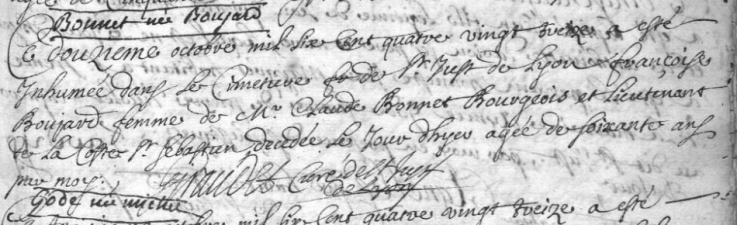 Bonnet née Boujard
Ce douzieme octobre mil six Cent quatre vingt treize a esté
Inhumée dans le Cimetiere de St Just de Lyon françoise
Boujard femme de Mr Claude Bonnet Bourgeois et Lieutenant
de la Coste St Sebastien decedée le Jour dhyer agée de soixante ans
par moy. Curé de St Just
de Lyon
mil six Cent quatre vingt treize a esté